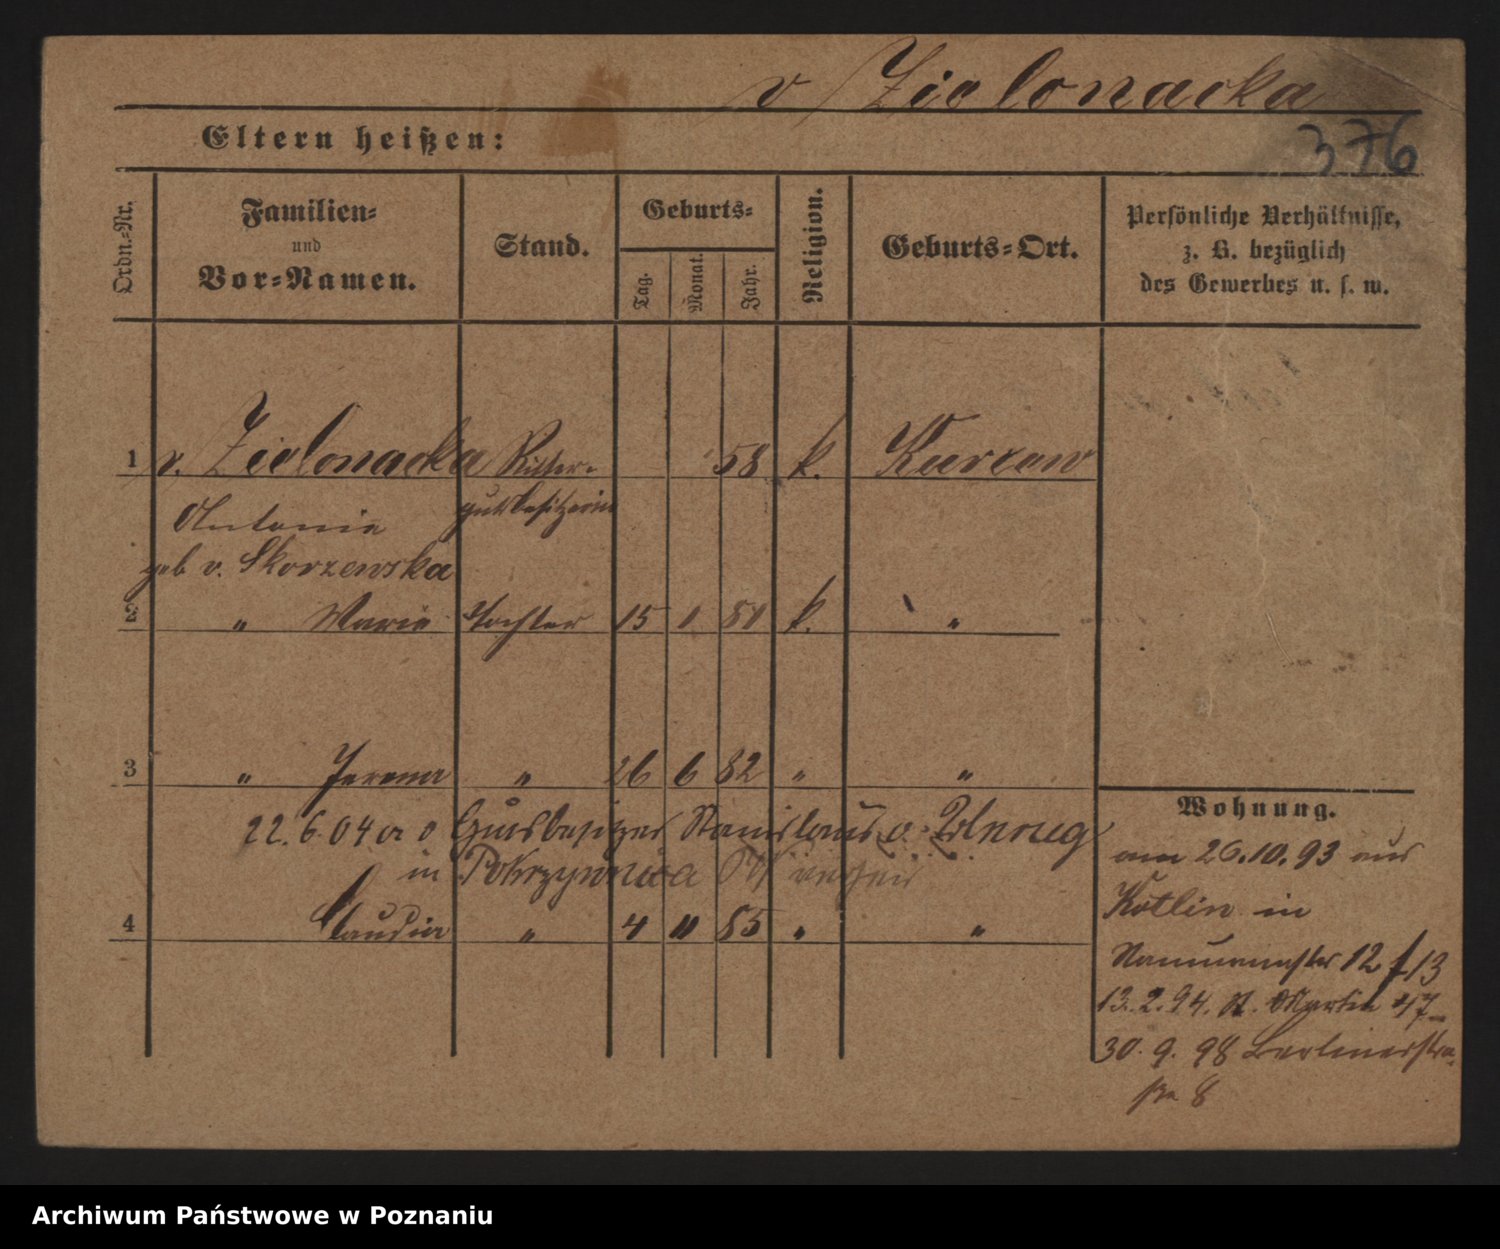 v. Zielonacka
Eltern heißen:
376
Ordn.-Nr.
Familien-
und
Vor-Namen.
Stand.
Geburts-
Tag.
Monat.
Jahr.
Religion.
Geburts-Ort.
Persönliche Verhältnisse,
z. B. bezüglich
des Gewerbes u. s. w.
1 v. Zielonacka Ritter- 58 k.
Antonie gutsbesitzerin
geb v. Skorzewska
2 " Marie Tochter 15 1 81 k. "
3 " " 26 6 82 " "
22.6.04 Gutsbesitzer Stanislaus v.
in Pokrzywnica
4 Claudia " 4 11 85 " "
Wohnung.
am 26.10.93 aus
Kotlin in
12/13
13.2.94. St. Martin 47
30.9.98 Berlinerstra-
ße 8
Archiwum Państwowe w Poznaniu